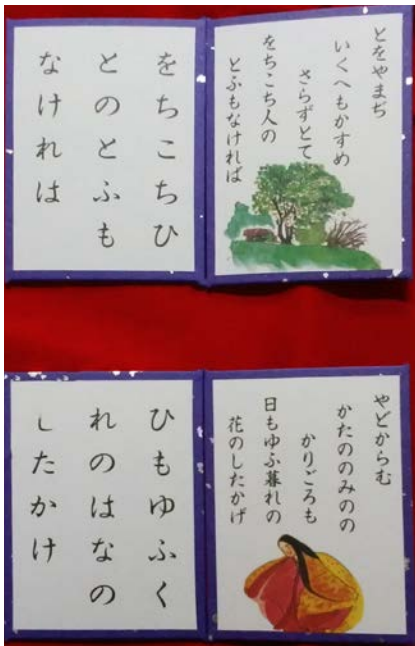 とをやまぢ
いくへもかすめ
さらずとて
をちこち人の
とふもなければ
をちこちひ
とのとふも
なけれは
やどからむ
かたののみのの
かりごろも
日もゆふ暮れの
花のしたかげ
ひもゆふく
れのはなの
したかけ